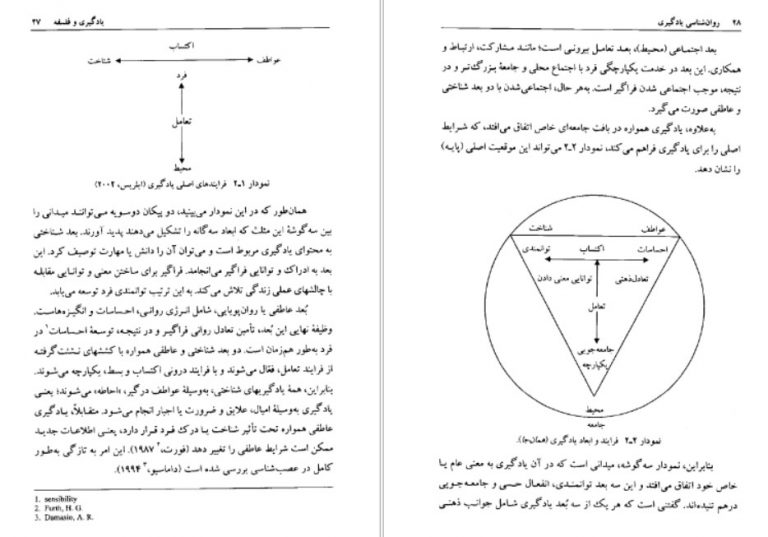 یادگیری و فلسفه ۲۷
اکتساب
عواطف شناخت
فرد
تعامل
محیط
نمودار ۱ـ۲ فرایندهای اصلی یادگیری (ایلریس، ۲۰۰۲)
همان‌طور که در این نمودار می‌بینید، دو پیکان دوسویه می‌توانند میدانی را
بین سه‌گوشهٔ این مثلث که ابعاد سه‌گانه را تشکیل می‌دهند پدید آورند. بعد شناختی
به محتوای یادگیری مربوط است و می‌توان آن را دانش یا مهارت توصیف کرد. این
بعد به ادراک و توانایی فراگیر می‌انجامد. فراگیر برای ساختن معنی و توانایی مقابله
با چالشهای عملی زندگی تلاش می‌کند. به این ترتیب توانمندی فرد توسعه می‌یابد.
بُعد عاطفی یا روان‌پویایی، شامل انرژی روانی، احساسات و انگیزه‌هاست.
وظیفهٔ نهایی این بُعد، تأمین تعادل روانی فراگیر و در نتیجه، توسعهٔ احساسات۱ در
فرد به‌طور همزمان است. دو بعد شناختی و عاطفی همواره با کششهای نشئت‌گرفته
از فرایند تعامل، فعّال می‌شوند و با فرایند درونی اکتساب و بسط، یکپارچه می‌شوند.
بنابراین، همهٔ یادگیریهای شناختی، به‌وسیلهٔ عواطف درگیر، «احاطه» می‌شوند؛ یعنی
یادگیری به‌وسیلهٔ امیال، علایق و ضرورت یا اجبار انجام می‌شود. متقابلاً، یادگیری
عاطفی همواره تحت تأثیر شناخت یا درک فرد قرار دارد، یعنی اطلاعات جدید
ممکن است شرایط عاطفی را تغییر دهد (فورت،۲ ۱۹۸۷). این امر به تازگی به‌طور
کامل در عصب‌شناسی بررسی شده است (داماسیو،۳ ۱۹۹۴).
1. sensibility
2. Furth, H. G.
3. Damasio, A. R.
۲۸ روان‌شناسی یادگیری
بعد اجتماعی (محیط)، بعد تعامل بیرونی است؛ مانند مشارکت، ارتباط و
همکاری. این بعد در خدمت یکپارچگی فرد با اجتماع محلی و جامعهٔ بزرگ‌تر و در
نتیجه، موجب اجتماعی شدن فراگیر است. به‌هر حال، اجتماعی‌شدن با دو بعد شناختی
و عاطفی صورت می‌گیرد.
به‌علاوه، یادگیری همواره در بافت جامعه‌ای خاص اتفاق می‌افتد، که شرایط
اصلی را برای یادگیری فراهم می‌کند، نمودار ۲ـ۲ می‌تواند این موقعیت اصلی (پایه)
را نشان دهد.
عواطف شناخت
احساسات اکتساب توانمندی
تعادل‌ذهنی توانایی معنی دادن
تعامل
جامعه‌جویی
یکپارچه
محیط
جامعه
نمودار ۲ـ۲ فرایند و ابعاد یادگیری (همان‌جا).
بنابراین، نمودار سه‌گوشه، میدانی است که در آن یادگیری به معنی عام یا
خاص خود اتفاق می‌افتد و این سه بعد توانمندی، انفعال حسی و جامعه‌جویی
درهم تنیده‌اند. گفتنی است که هر یک از سه بُعد یادگیری شامل جوانب ذهنی